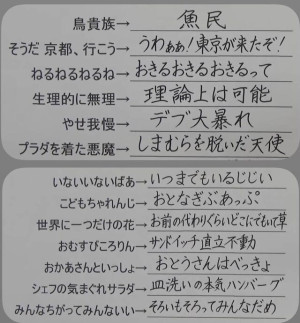 鳥貴族→魚民
そうだ 京都、行こう→うわぁぁ！東京が来たぞ！
ねるねるねるね→おきるおきるおきるって
生理的に無理→理論上は可能
やせ我慢→デブ大暴れ
プラダを着た悪魔→しまむらを脱いだ天使
いないいないばあ→いつまでもいるじじい
こどもちゃれんじ→おとなぎぶあっぷ
世界に一つだけの花→お前の代わりくらいどこにでもいて草
おむすびころりん→サンドイッチ直立不動
おかあさんといっしょ→おとうさんはべっきょ
シェフの気まぐれサラダ→皿洗いの本気ハンバーグ
みんなちがってみんないい→そろいもそろってみんなだめ